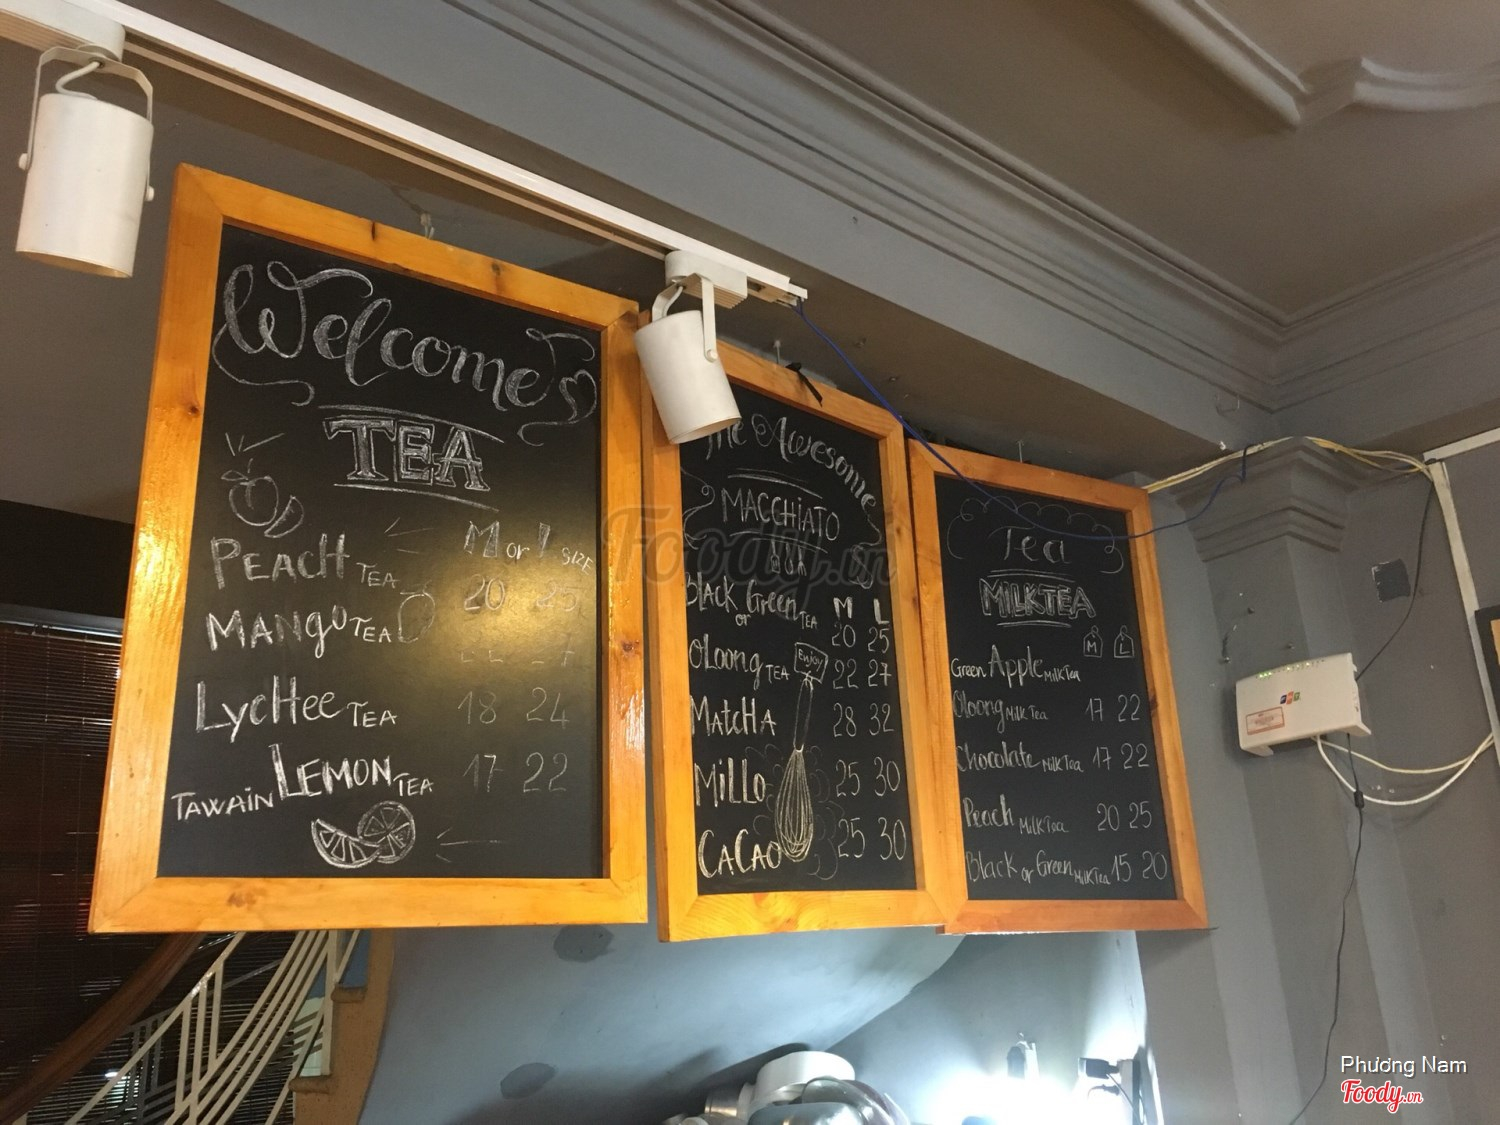 Welcome
TEA
M or L SIZE
PEACH TEA 20 25
MANGO TEA
LycHee TEA 18 24
TAWAIN LEMON TEA 17 22
The Awesome
MACCHIATO
M L
Black or Green TEA 20 25
OLoong TEA 22 27
Enjoy
MatcHA 28 32
MiLLo 25 30
CaCao 25 30
Tea
MILKTEA
M L
Green Apple MilkTea
Oloong MilkTea 17 22
Chocolate MilkTea 17 22
Peach MilkTea 20 25
Black or Green MilkTea 15 20
FPT
Foody.vn
Phương Nam
Foody.vn